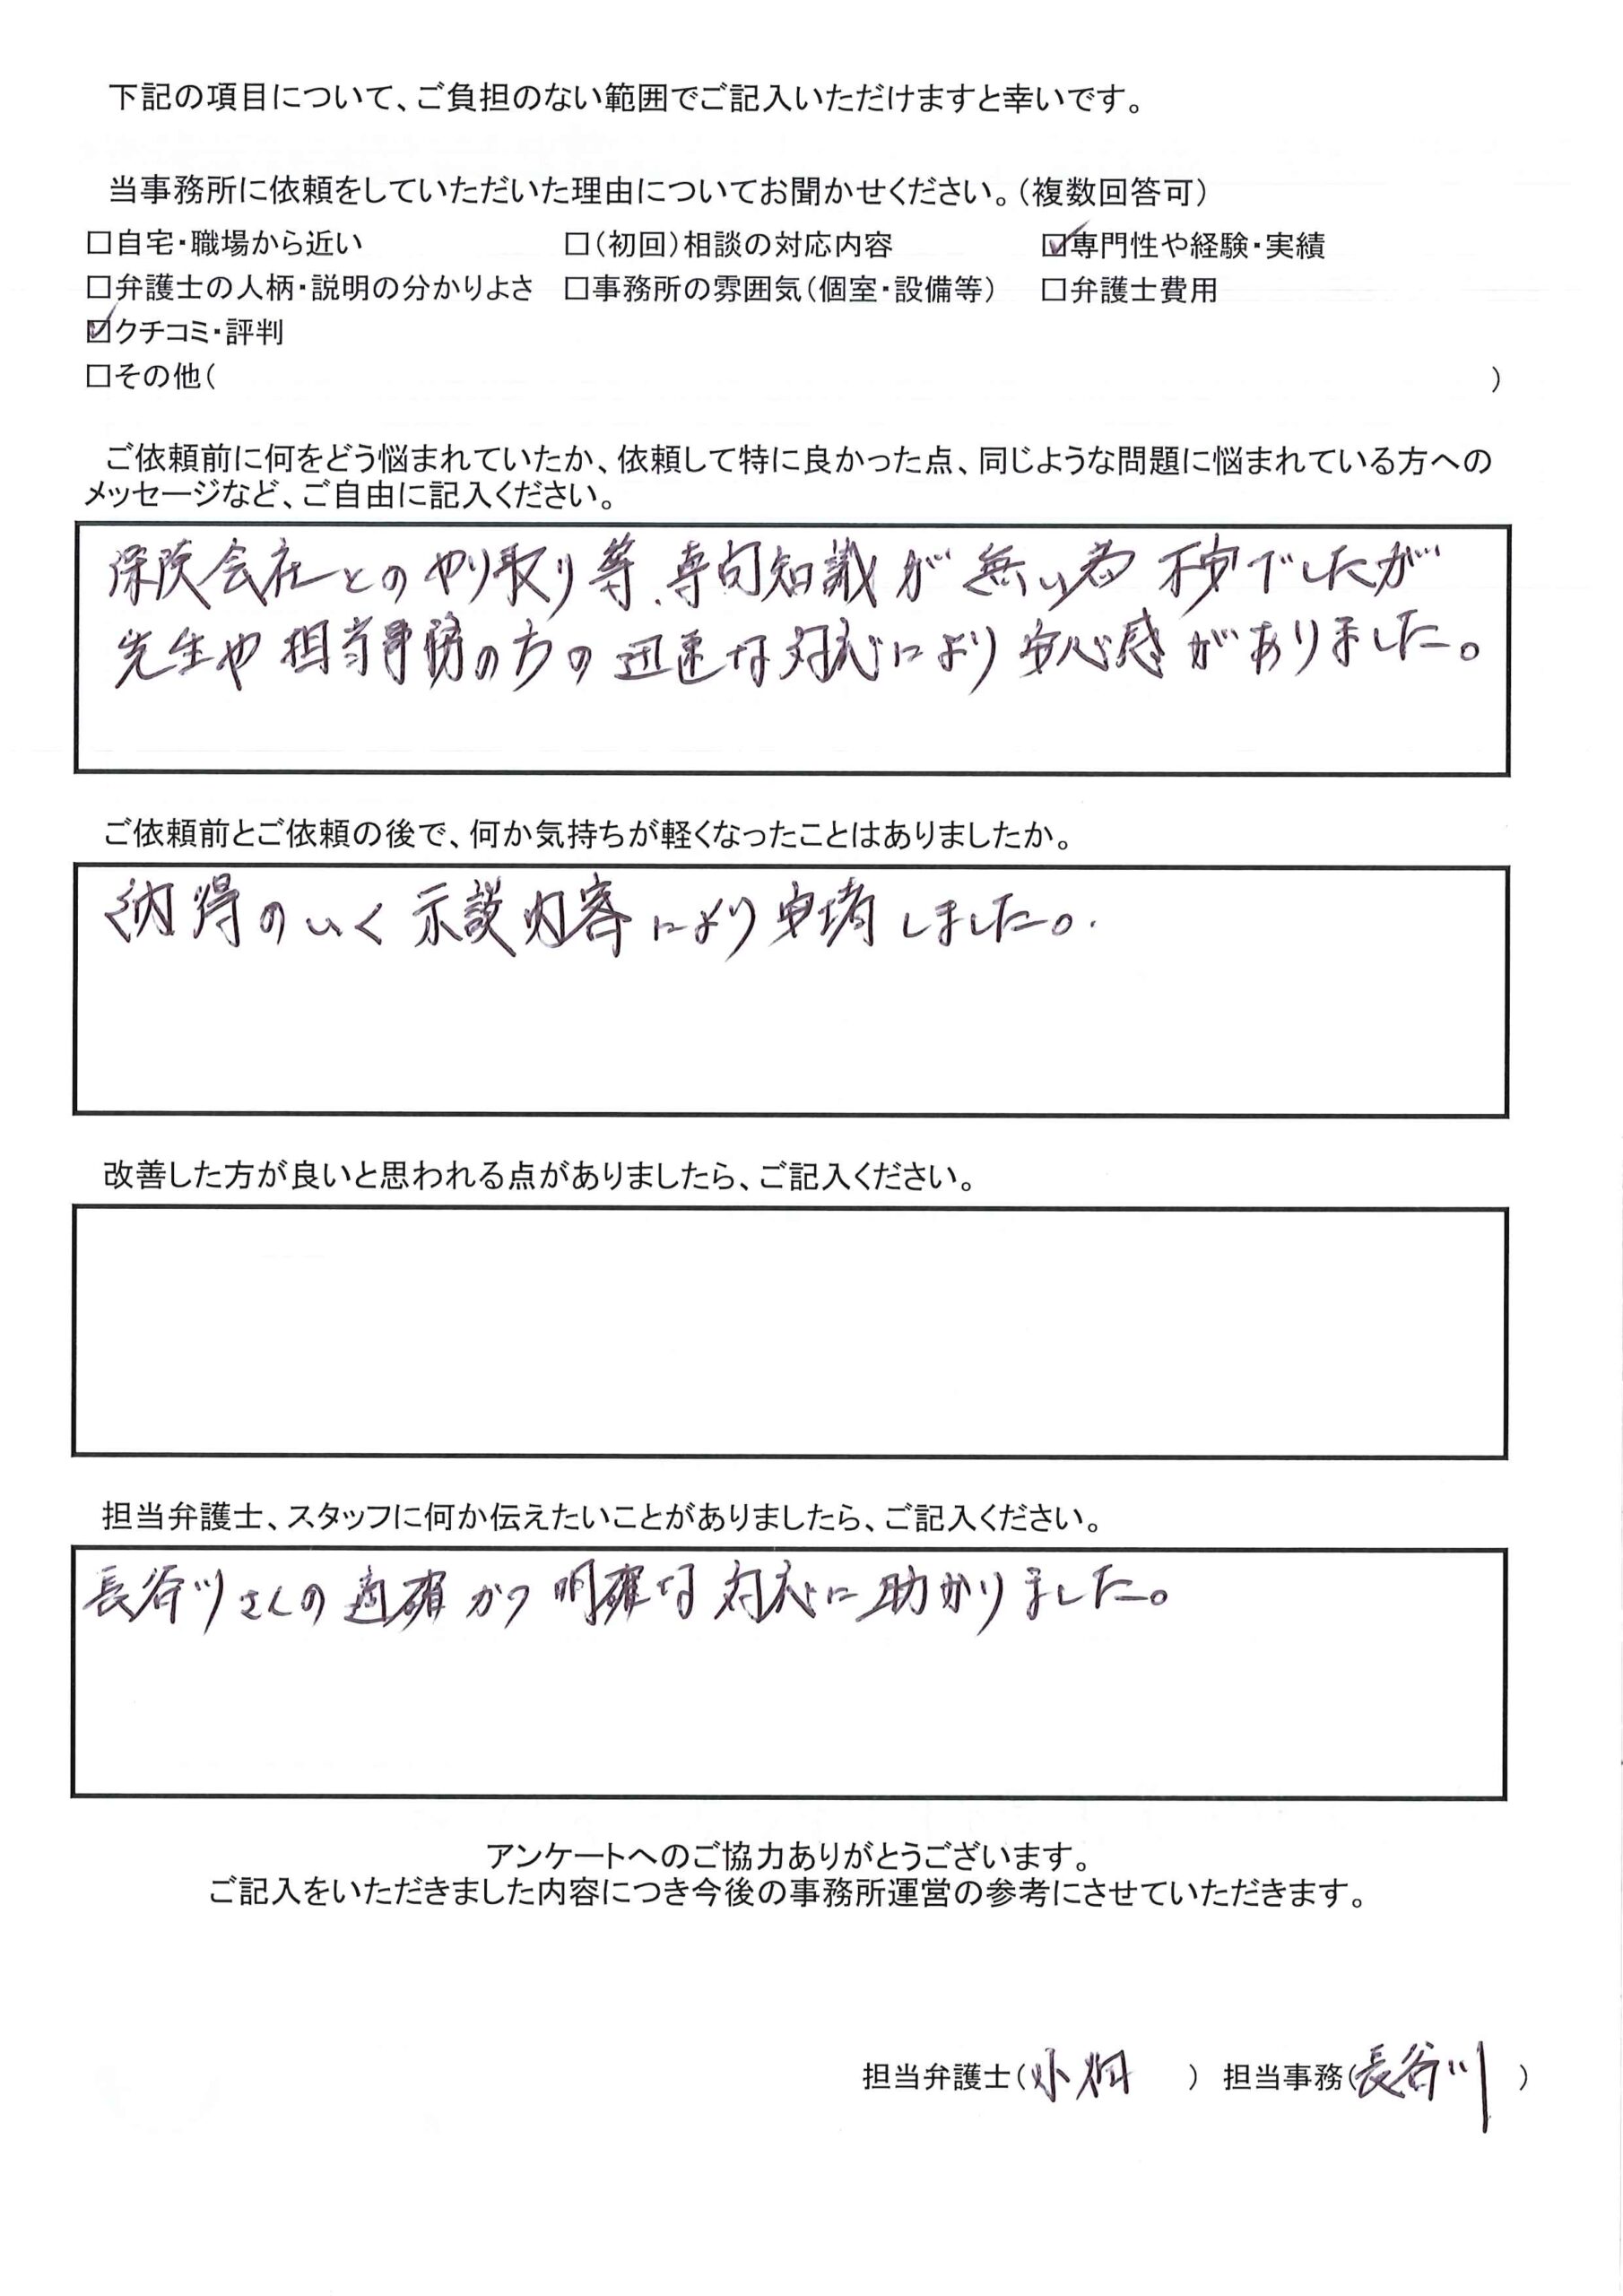 下記の項目について、ご負担のない範囲でご記入いただけますと幸いです。
当事務所に依頼をしていただいた理由についてお聞かせください。(複数回答可)
□自宅・職場から近い □(初回)相談の対応内容 ☑専門性や経験・実績
□弁護士の人柄・説明の分かりよさ □事務所の雰囲気(個室・設備等) □弁護士費用
☑クチコミ・評判
□その他( )
ご依頼前に何をどう悩まれていたか、依頼して特に良かった点、同じような問題に悩まれている方への
メッセージなど、ご自由に記入ください。
保険会社とのやり取り等、専門知識が無い為 不安でしたが
先生や担当事務の方の迅速な対応により安心感がありました。
ご依頼前とご依頼の後で、何か気持ちが軽くなったことはありましたか。
納得のいく示談内容により安堵しました。
改善した方が良いと思われる点がありましたら、ご記入ください。
担当弁護士、スタッフに何か伝えたいことがありましたら、ご記入ください。
長谷川さんの適確かつ明確な対応に助かりました。
アンケートへのご協力ありがとうございます。
ご記入をいただきました内容につき今後の事務所運営の参考にさせていただきます。
担当弁護士(小畑 ) 担当事務(長谷川 )